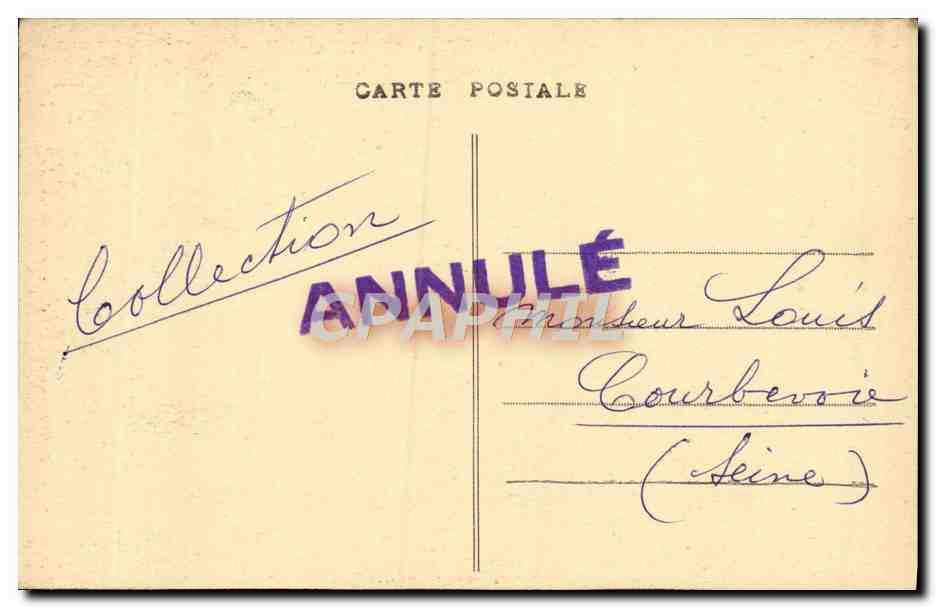 CARTE POSTALE
Collection
ANNULÉ
CPAPHIL
Monsieur Louis
Courbevoie
(Seine)